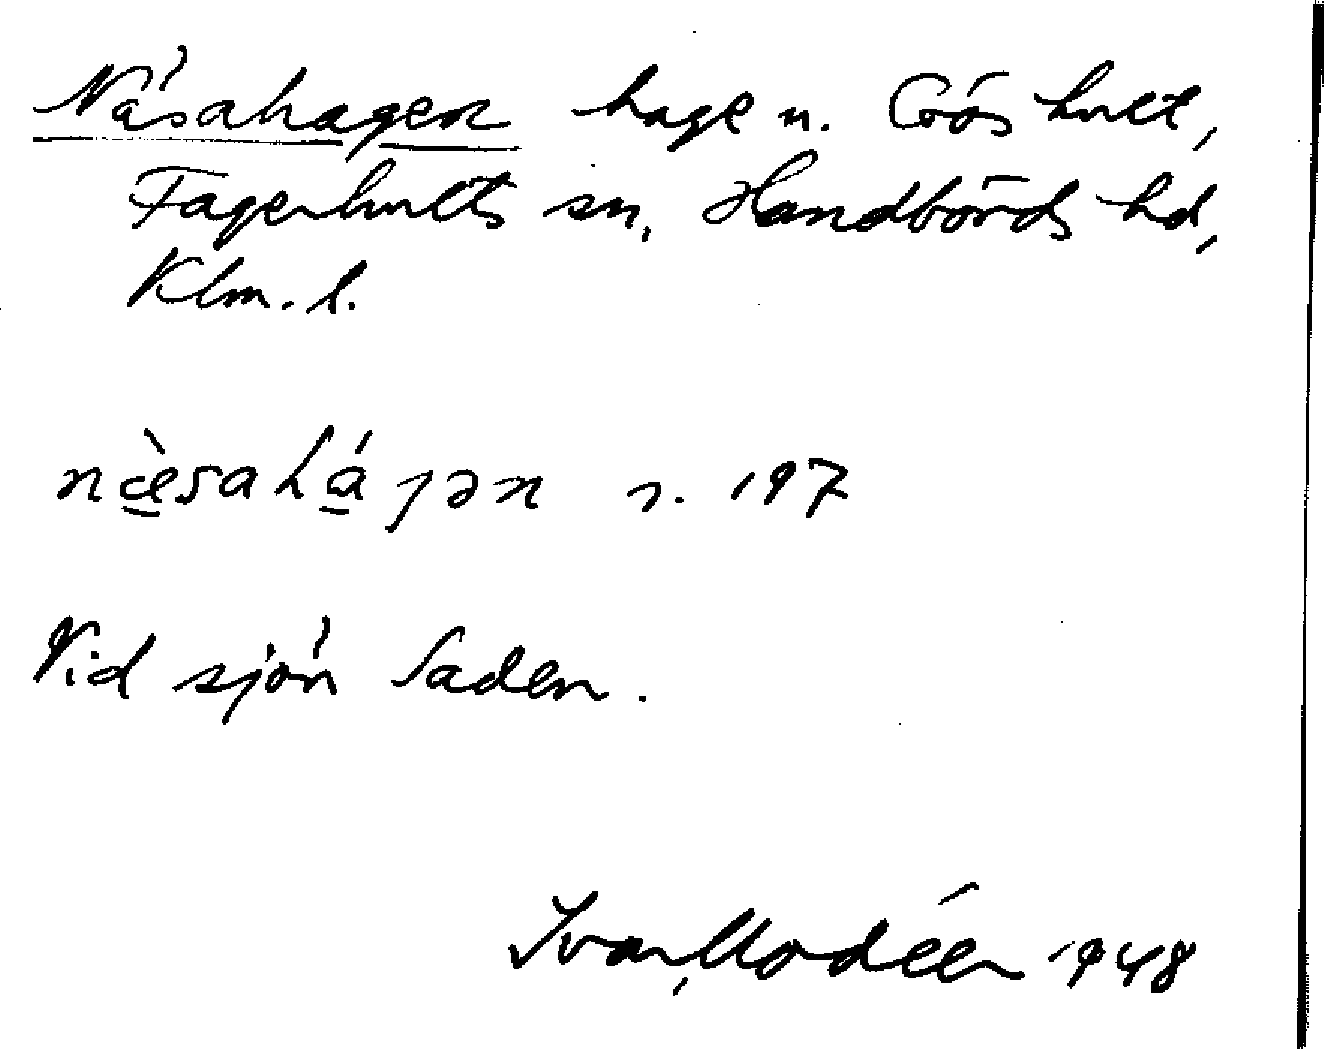 Näsahagen hage n. Göshult,
Fagerhults sn, Handbörds hd,
Klm. l.
næ̀sahágən s. 197
Vid sjön Saden.
Ivar Modéer 1948